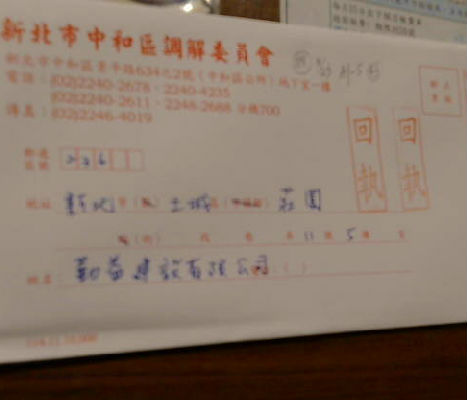 新北市中和區調解委員會
新北市中和區景平路634之2號（中和區公所）地下室一樓
電話：(02)2240-2678・2240-4235
(02)2240-2611・2248-2688 分機700
傳真：(02)2246-4019
回執
回執
郵遞區號 236
地址 新北市 土城區 莊園
街 段 巷 弄 11 號 5 樓 室
姓名 勤益建設有限公司